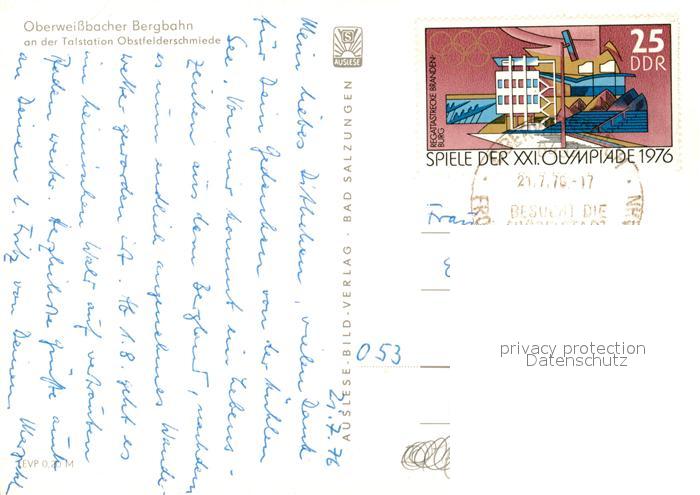 Oberweißbacher Bergbahn
an der Talstation Obstfelderschmiede
S
AUSLESE
REGATTASTRECKE BRANDEN-
BURG
25
DDR
SPIELE DER XXI. OLYMPIADE 1976
21.7.76-17
BESUCHT DIE
Frau
053
21.7.76
Mein liebes Dithchen, vielen Dank
für Dein Gedenken von der kühlen
See. Von mir kommt ein Lebens-
zeichen aus dem Bergland, nachdem
es nun endlich angenehmes Wander-
wetter geworden ist. Ab 1.8. geht es
im heimischen Wald auf vertrauten
Pfaden weiter. Herzlichste Grüße auch
an Deinen l. Fritz von Deinem
AUSLESE-BILD-VERLAG · BAD SALZUNGEN
EVP 0,20 M
privacy protection
Datenschutz